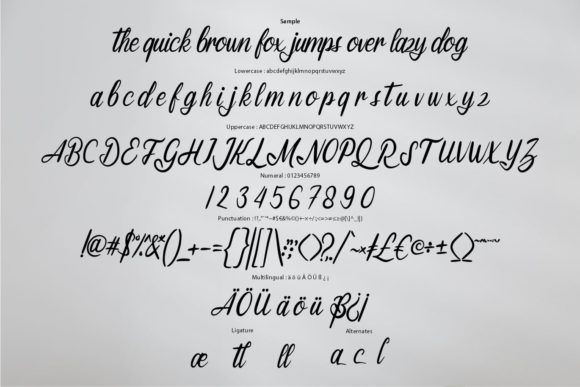 Sample
the quick brown fox jumps over lazy dog
Lowercase : abcdefghijklmnopqrstuvwxyz
abcdefghijklmnopqrstuvwxyz
Uppercase : ABCDEFGHIJKLMNOPQRSTUVWXYZ
ABCDEFGHIJKLMNOPQRSTUVWXYZ
Numeral : 0123456789
1234567890
!@#$%^&*()_+-={}|[]\:";'<>?,./
Multilingual : ä ö ü Ä Ö Ü ß ¿ ¡
ÄÖÜ äöü ß¿¡
Ligature Alternates
æ tl ll a c l